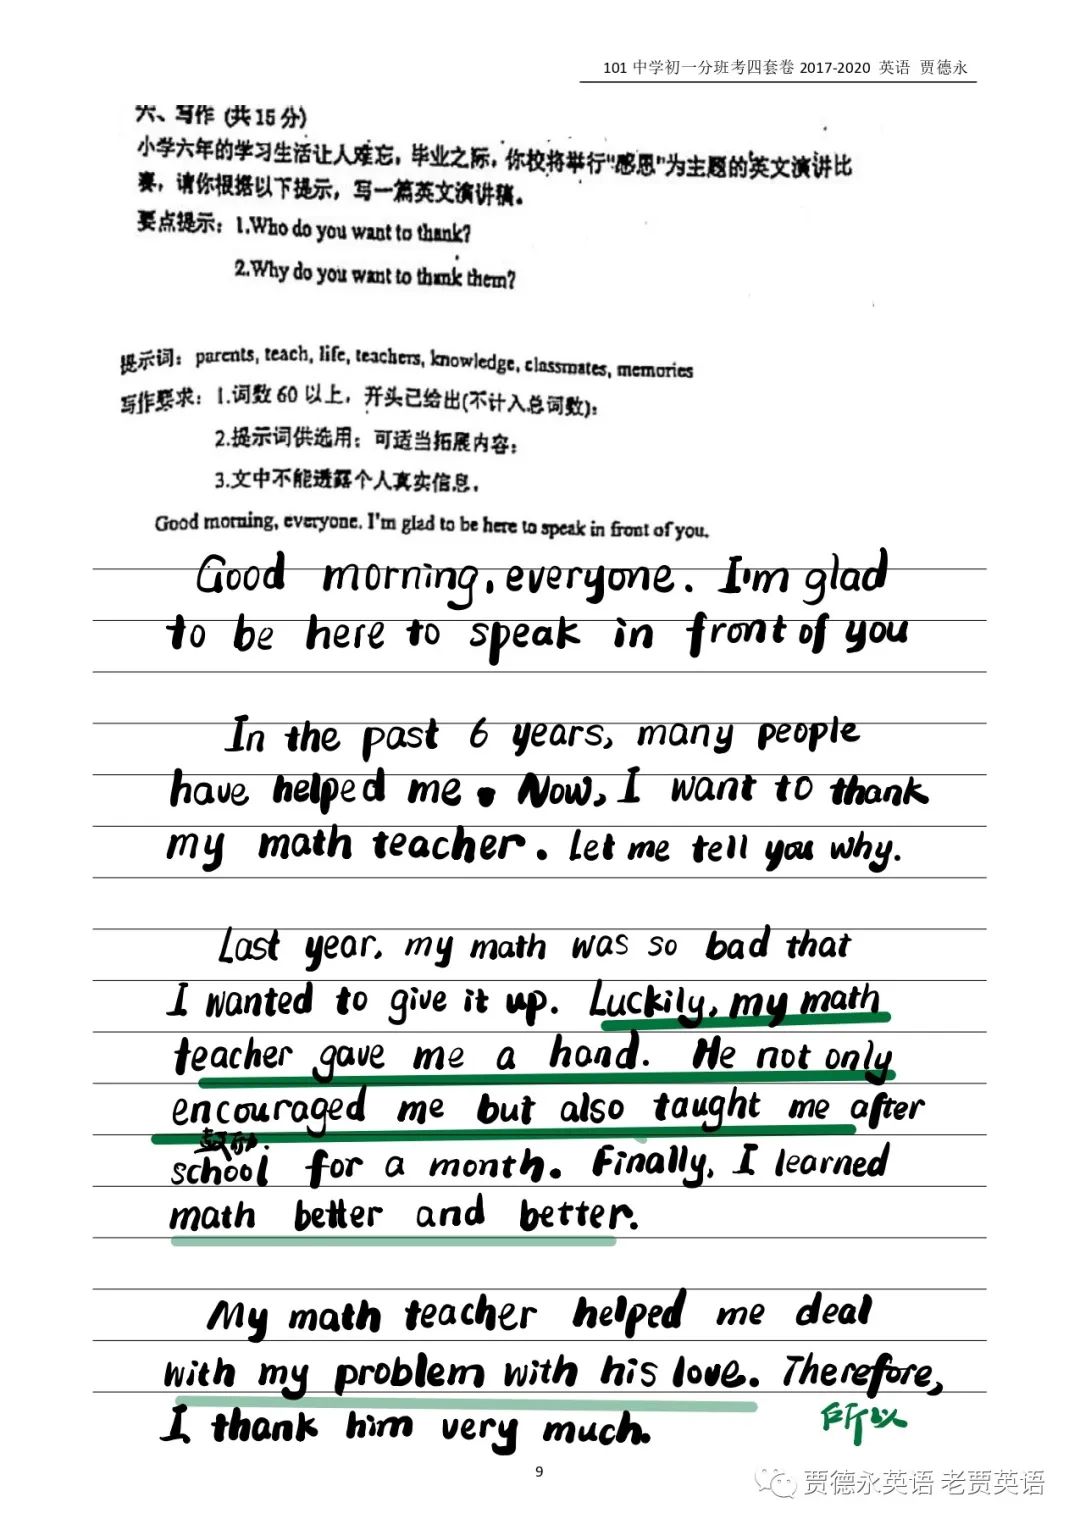 101 中学初一分班考四套卷 2017-2020 英语 贾德永
六、写作 (共 15 分)
小学六年的学习生活让人难忘，毕业之际，你校将举行"感恩"为主题的英文演讲比
赛，请你根据以下提示，写一篇英文演讲稿。
要点提示：1.Who do you want to thank?
2.Why do you want to thank them?
提示词：parents, teach, life, teachers, knowledge, classmates, memories
写作要求：1.词数 60 以上，开头已给出(不计入总词数)；
2.提示词供选用；可适当拓展内容；
3.文中不能透露个人真实信息。
Good morning, everyone. I'm glad to be here to speak in front of you.
Good morning, everyone. I'm glad
to be here to speak in front of you
In the past 6 years, many people
have helped me. Now, I want to thank
my math teacher. Let me tell you why.
Last year, my math was so bad that
I wanted to give it up. Luckily, my math
teacher gave me a hand. He not only
encouraged me but also taught me after
鼓励.
school for a month. Finally, I learned
math better and better.
My math teacher helped me deal
with my problem with his love. Therefore,
所以
I thank him very much.
9
贾德永英语 老贾英语